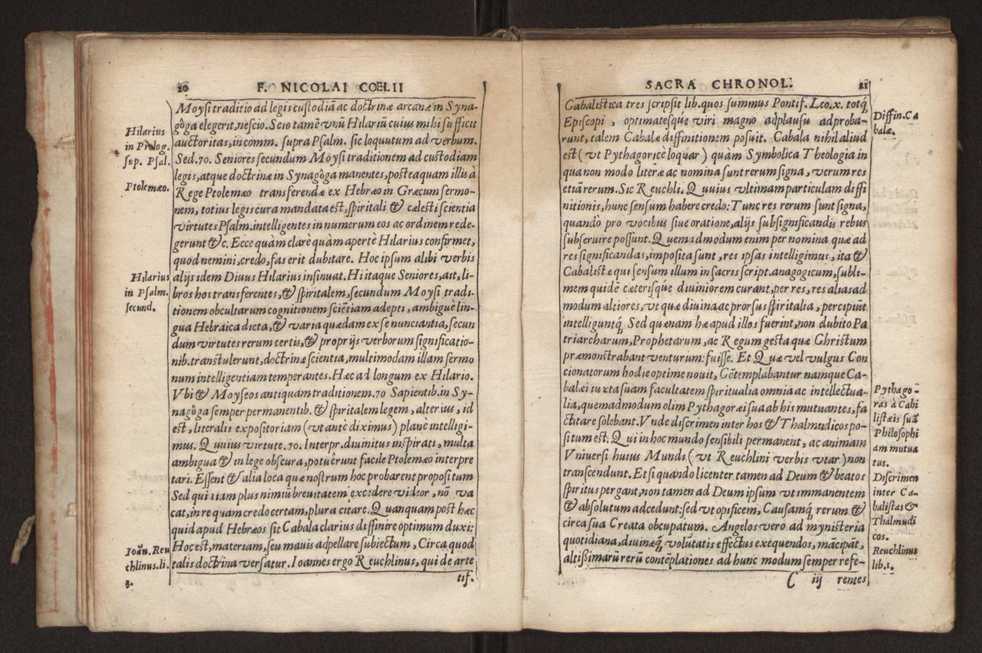 20 F. NICOLAI COELII
Moysi traditio ad legis custodiã ac doctrinæ arcanæ in Syna-
goga elegerit, nescio. Scio tamẽ vnũ Hilariũ cuius mihi sufficit
auctoritas, in comm. supra Psalm. sic loquutum ad verbum.
Sed. 70. Seniores secundum Moysi traditionem ad custodiam
legis, atque doctrinæ in Synagoga manentes, postea quam illis à
Rege Ptolemæo transferendæ ex Hebræo in Græcum sermo-
nem, totius legis cura mandata est, spiritali & cælesti scientia
virtutes Psalm. intelligentes in numerum eos ac ordinem rede-
gerunt &c. Ecce quàm clarè quàm apertè Hilarius confirmet,
quod nemini, credo, fas erit dubitare. Hoc ipsum alibi verbis
alijs idem Diuus Hilarius insinuat. Hi itaque Seniores, ait, li-
bros hos transferentes, & spiritalem, secundum Moysi tradi-
tionem occultarum cognitionem sciẽtiam adepti, ambiguè lin-
gua Hebraica dicta, & varia quædam ex se nunciantia, secun
dum virtutes rerum certis, & proprijs verborum significatio-
nib. trãstulerunt, doctrinæ scientia, multimodam illam sermo
num intelligentiam temperantes. Hæc ad longum ex Hilario.
Vbi & Moyseos antiquam traditionem. 70 Sapientib. in Sy-
nagoga semper permanentib. & spiritalem legem, alterius, id
est, literalis expositoriam (vt antè diximus) planè intelligi-
mus. Quuius virtute. 70. Interpr. diuinitus inspirati, multa
ambigua & in lege obscura, potuerunt facile Ptolemæo interpre
tari. Essent & alia loca quæ nostrum hoc probarent propositum
Sed quiiam plus nimiũ breuitatem excedere videor, nõ va
cat, in re quam credo certam, plura citare. Quanquam post hæc
quid apud Hebræos sic Cabala clarius diffinire optimum duxi:
Hoc est, materiam, seu mauis adpellare subiectum, Circa quod
talis doctrina versatur. Ioannes ergo Reuchlinus, qui de arte
tis.
Hilarius
in Prolog.
sup. Psal.
Ptolemæo.
Hilarius
in Psalm.
secund.
Ioãn. Reu
chlinus. li.
3.
SACRA CHRONOL. 21
Cabalistica tres scripsit lib. quos summus Pontif. Leo. x. totq́
Episcopi, optimatesque viri magno adplausu adproba-
runt, talem Cabalæ diffinitionem posuit. Cabala nihil aliud
est (vt Pythagoricè loquar) quàm Symbolica Theologia in
qua non modo literæ ac nomina sunt rerum signa, verum res
etiã rerum. Sic Reuchli. Quuius vltimam particulam diffi
nitionis, hunc sensum habere credo: Tunc res rerum sunt signa,
quando pro vocibus siue oratione, alijs subsignificandis rebus
subseruire possunt. Quemadmodum enim per nomina quæ ad
res significandas, imposita sunt, res ipsas intelligimus, ita &
Cabalistæ qui sensum illum in sacris script. anagogicum, subli-
mem quidẽ cæterisque diuiniorem curant, per res, res alias ad
modum altiores, vt quæ diuina ac prorsus spiritalia, percipiũt
intelliguntq́. Sed quænam hæ apud illos fuerint, non dubito Pa
triarcharum, Prophetarum, ac Regum gesta quæ Christum
præmonstrabant venturum fuisse. Et Quæ vel vulgus Con
cionatorum hodie optime nouit, Cõtemplabantur namque Ca-
balæi iuxta suam facultatem spiritualia omnia ac intellectua-
lia, quemadmodum olim Pythagoræi sua ab his mutuantes, fa
ctitare solebant. Vnde discrimen inter hos & Thalmudicos po-
situm est. Qui in hoc mundo sensibili permanent, ac animam
Vniuersi huius Mundi (vt Reuchlini verbis vtar) non
transcendunt. Et si quando licenter tamen ad Deum & beatos
spiritus pergant, non tamen ad Deum ipsum vt immanentem
& absolutum adcedunt: sed vt opificem, Causamq́ rerum &
circa sua Creata occupatum. Angelos vero ad mynisteria
quotidiana, diuinæq́ volũtatis effectus exequendos, mãcipãt,
altissimarũ rerũ contẽplationes ad hunc modum semper refe-
C iij rentes
Diffin. Ca
balæ.
Pythago-
ras à Cabi
listæis suã
Philosophi
am mutua
tus.
Discrimen
inter Ca-
balistas &
Thalmudi
cos.
Reuchlinus
lib. 1.